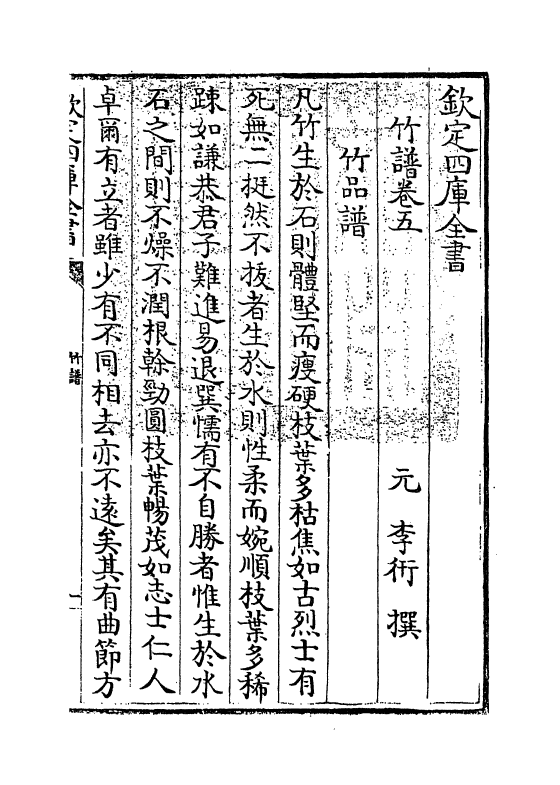 欽定四庫全書
竹譜卷五
元 李衎 撰
竹品譜
凡竹生於石則體堅而瘦硬枝葉多枯焦如古烈士有
死無二挺然不拔者生於水則性柔而婉順枝葉多稀
踈如謙恭君子難進易退巽懦有不自勝者惟生於水
石之間則不燥不潤根榦勁圓枝葉暢茂如志士仁人
卓爾有立者雖少有不同相去亦不遠矣其有曲節方
欽定四庫全書
竹譜
一